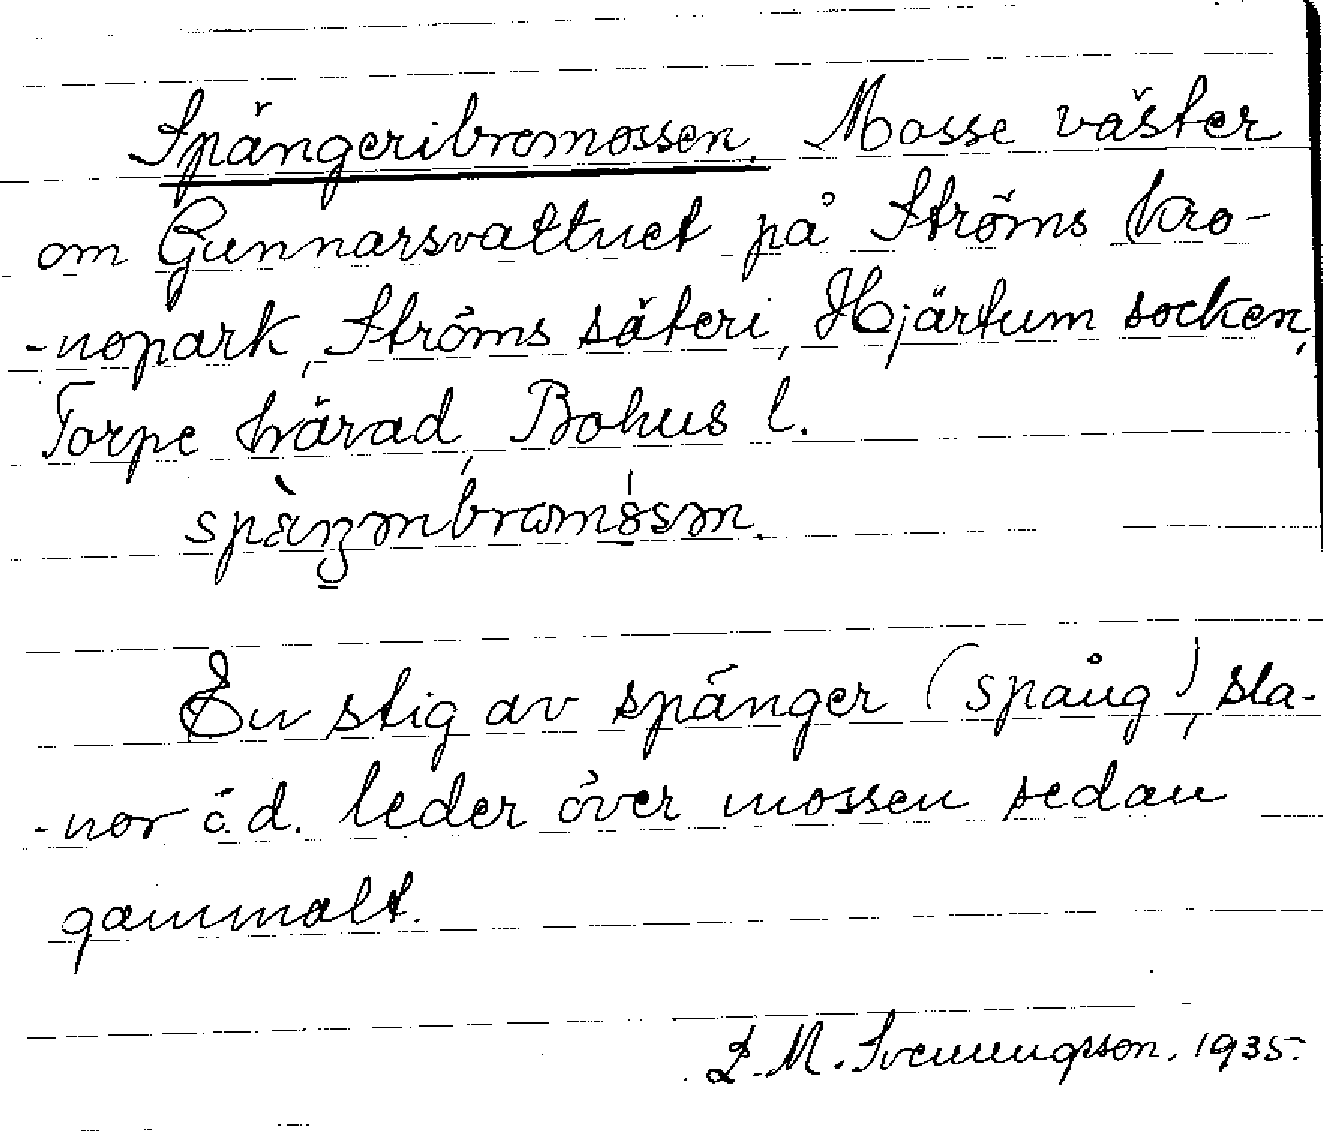 Spängeribromossen. Mosse väster
om Gunnarsvattnet på Ströms kro-
-nopark, Ströms säteri, Hjärtum socken,
Torpe härad, Bohus l.
En stig av spänger (spång), sla-
-nor o.d. leder över mossen sedan
gammalt.
L. M. Svenungsson. 1935.